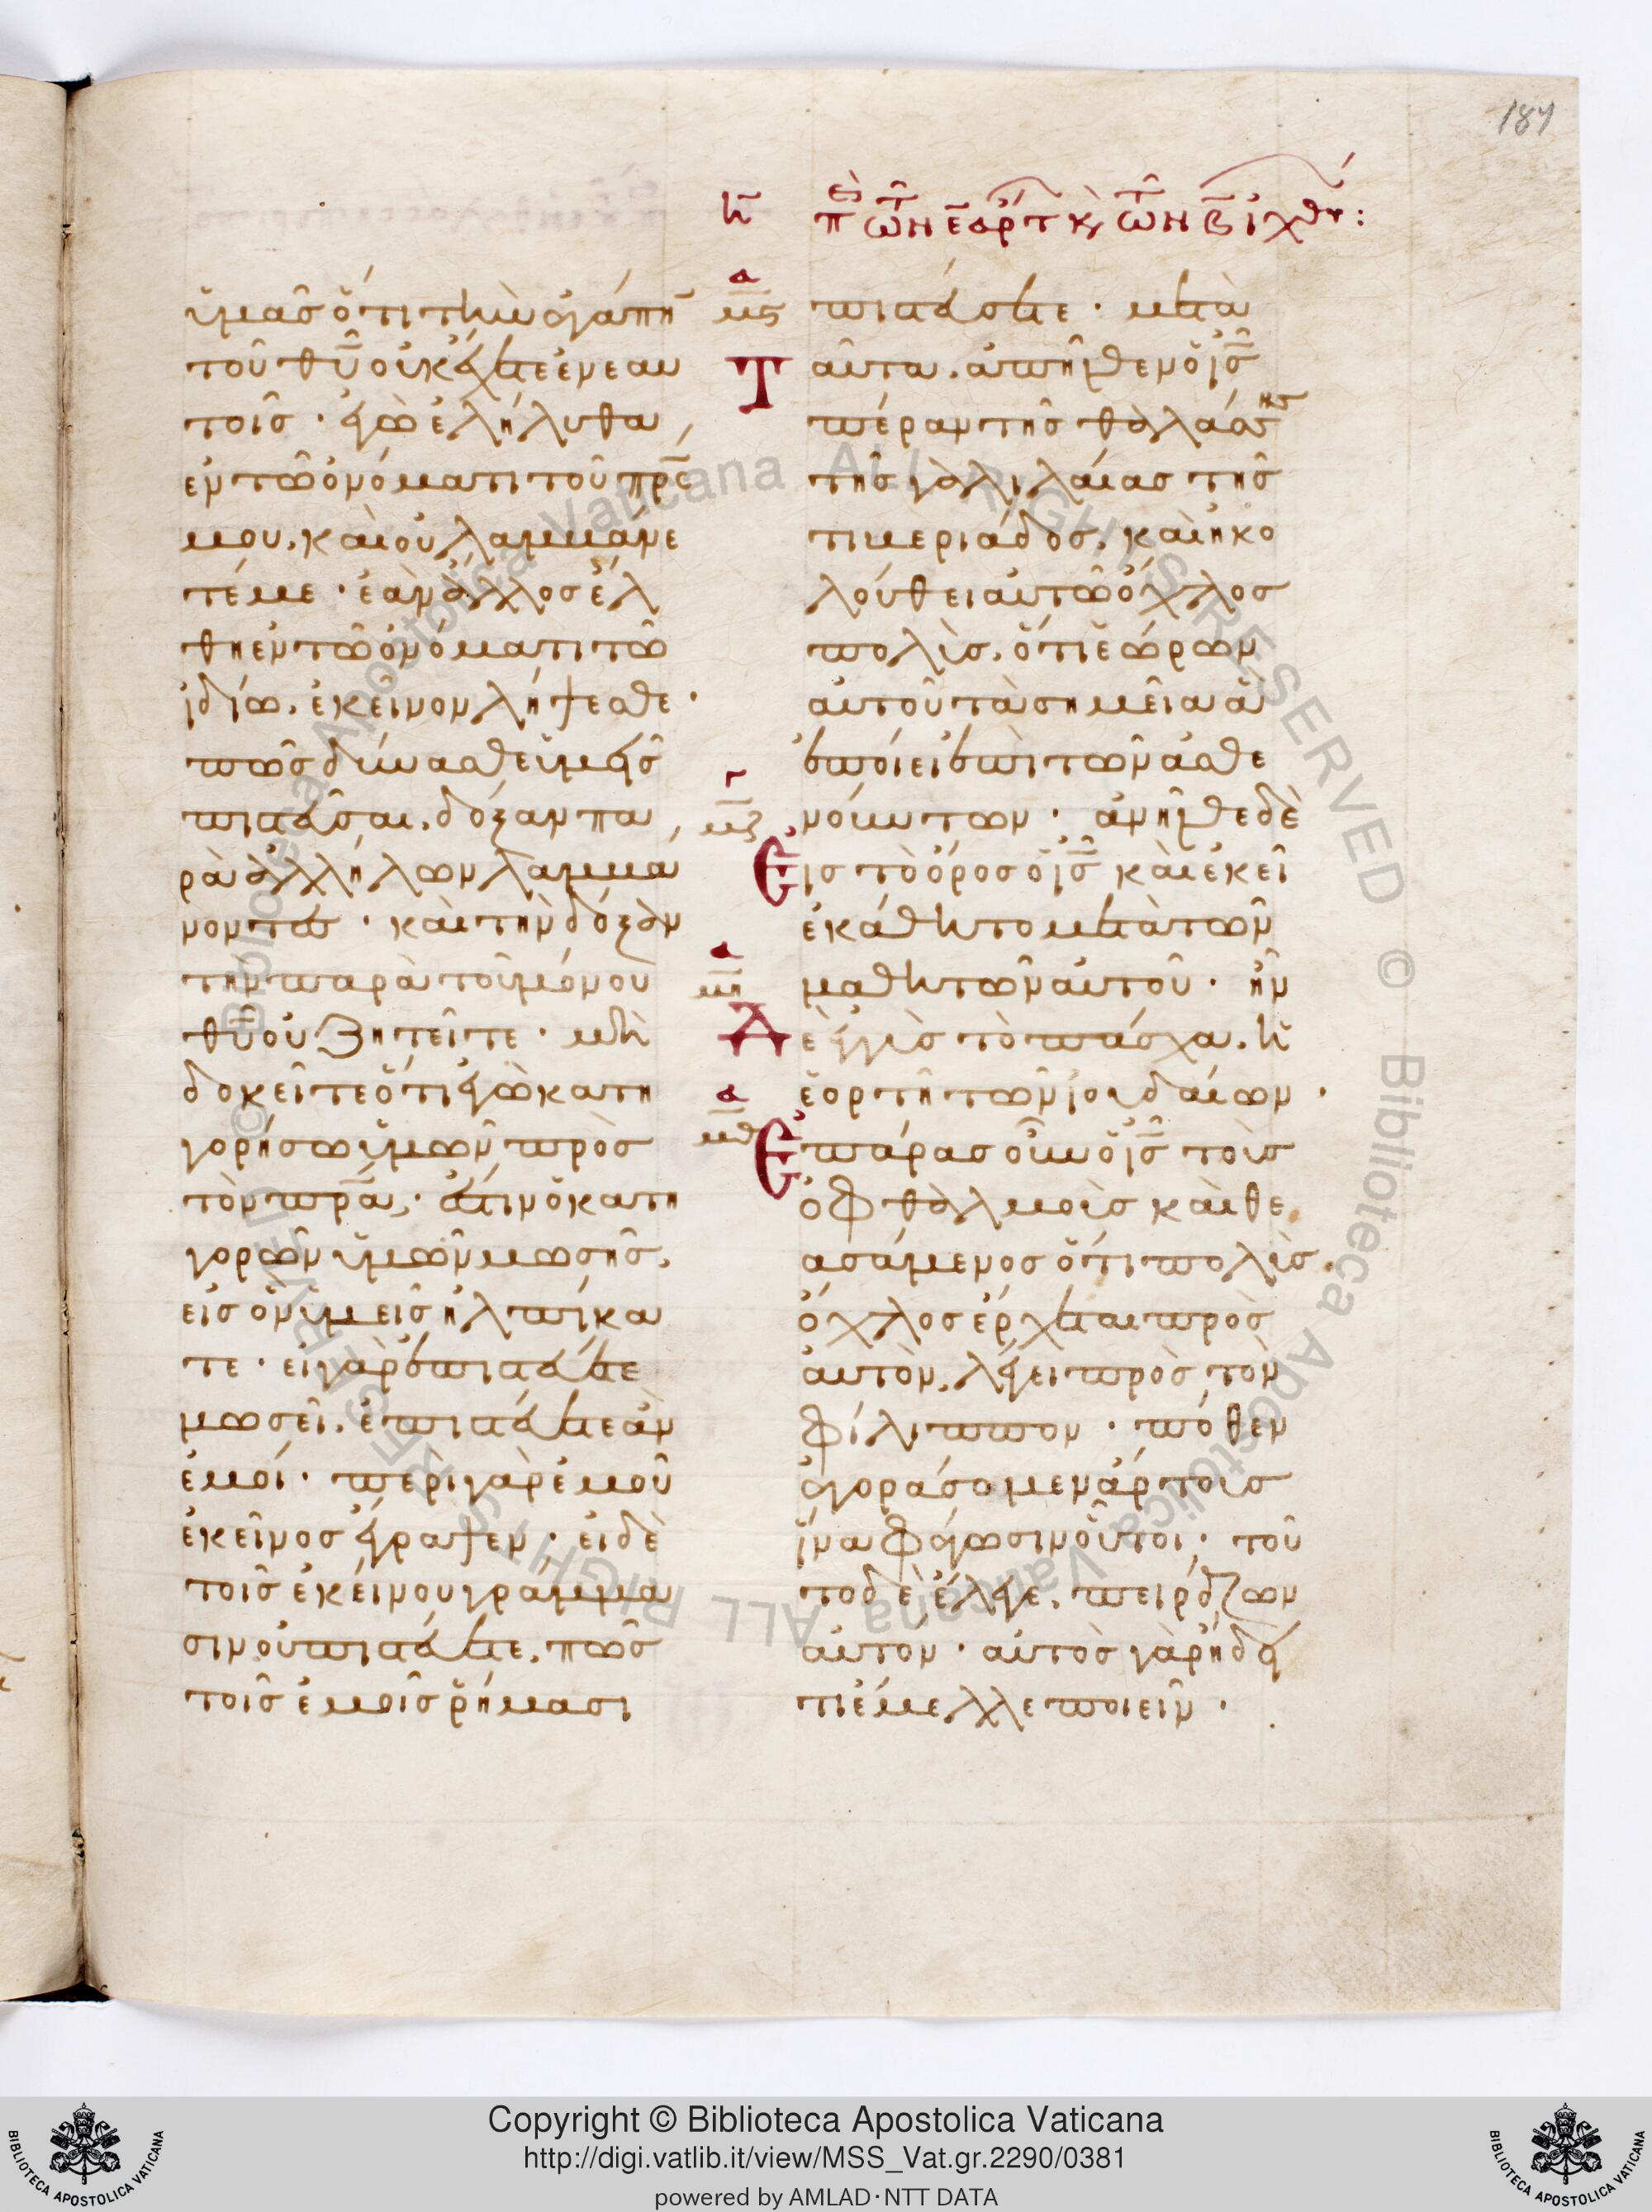 187
η̄ πὲ τῶν ε̄ ἄρτ κ, τῶν β̄ ἰχθύ:
ὑμᾶς ὅτι τὴν ἀγάπη̄
τοῦ θῡ οὐκ ἔχετε ἐν ἑαυ
τοῖς · ἐγὼ ἐλήλυθα
ἐν τῶ ὀνόματι τοῦ πρ̅σ
μου. καὶ οὐ λαμβάνε
τέ με · ἐὰν ἄλλος ἔλ
θη ἐν τῶ ὀνόματι τῶ
ἰδίω. ἐκεῖνον λήψεσθε ·
πῶς δύνασθε ὑμεῖς
πιστεῦσαι. δόξαν πα
ρὰ ἀλλήλων λαμβά
νοντες · καὶ τὴν δόξαν
τὴν παρὰ τοῦ μόνου
θῡ οὐ ζητεῖτε · μὴ
δοκεῖτε ὅτι ἐγὼ κατη
γορήσω ὑμῶν πρὸς
τὸν πρ̅α · ἔστιν ὁ κατη
γορῶν ὑμῶν μωσῆς.
εἰς ὃν ὑμεῖς ἠλπίκα
τε · εἰ γὰρ ἐπιστεύετε
μωσεῖ. ἐπιστεύετε ἂν
ἐμοί · περὶ γὰρ ἐμοῦ
ἐκεῖνος ἔγραψεν · εἰ δὲ
τοῖς ἐκείνου γράμμα
σιν οὐ πιστεύετε. πῶς
τοῖς ἐμοῖς ῥήμασι
α
μς πιστεύσετε · μετὰ
Ταῦτα. ἀπῆλθεν ὁ ι̅ς̅
πέραν τῆς θαλάσσης
τῆς γαλιλαίας τῆς
τιβεριάδος. καὶ ἠκο
λούθει αὐτῶ ὄχλος
πολύς. ὅτι ἑώρων
αὐτοῦ τὰ σημεῖα ἃ
ἐποίει ἐπὶ τῶν ἀσθε
γ
μζ νούντων · ἀνῆλθε δὲ
Εἰς τὸ ὄρος ὁ ι̅ς̅ καὶ ἐκεῖ
ἐκάθητο μετὰ τῶν
α
μη μαθητῶν αὐτοῦ · ἦν
Δὲ ἐγγὺς τὸ πάσχα. ἡ
α
ἑορτὴ τῶν ἰουδαίων ·
μθ Ἐπάρας οὖν ὁ ι̅ς̅ τοὺς
ὀφθαλμοὺς καὶ θε
ασάμενος ὅτι πολὺς
ὄχλος ἔρχεται πρὸς
αὐτὸν. λέγει πρὸς τὸν
φίλιππον · πόθεν
ἀγοράσομεν ἄρτους
ἵνα φάγωσιν οὗτοι · τοῦ
το δὲ ἔλεγε. πειράζων
αὐτὸν · αὐτὸς γὰρ ἤδει
τι ἔμελλε ποιεῖν ·
Copyright © Biblioteca Apostolica Vaticana
http://digi.vatlib.it/view/MSS_Vat.gr.2290/0381
powered by AMLAD·NTT DATA
BIBLIOTECA APOSTOLICA VATICANA
BIBLIOTECA APOSTOLICA VATICANA
© Biblioteca Apostolica Vaticana ALL RIGHTS RESERVED
© Biblioteca Apostolica Vaticana ALL RIGHTS RESERVED